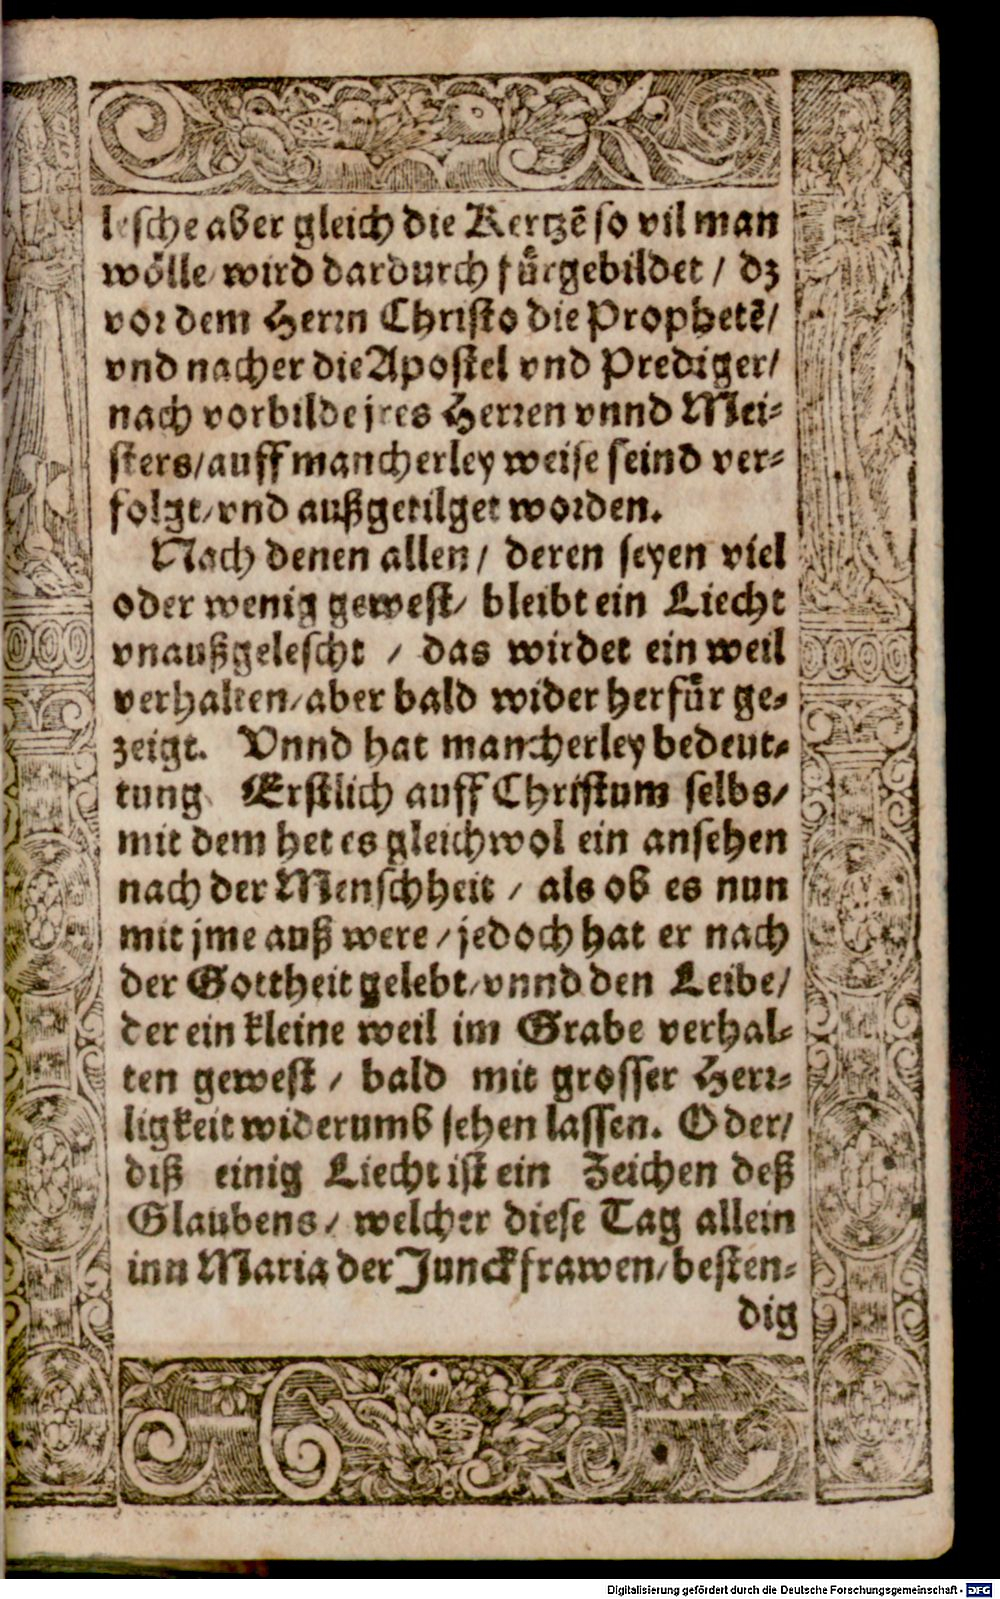 lesche aber gleich die Kertzē so vil man
wölle / wird dardurch fürgebildet / dz
vor dem Herrn Christo die Prophetē /
vnd nacher die Apostel vnd Prediger /
nach vorbilde jres Herren vnnd Mei-
sters / auff mancherley weise seind ver-
folgt / vnd außgetilget worden.
Nach denen allen / deren seyen viel
oder wenig gewest / bleibt ein Liecht
vnaußgelescht / das wirdet ein weil
verhalten / aber bald wider herfür ge-
zeigt. Vnnd hat mancherley bedeut-
tung. Erstlich auff Christum selbs /
mit dem het es gleichwol ein ansehen
nach der Menschheit / als ob es nun
mit jme auß were / jedoch hat er nach
der Gottheit gelebt / vnnd den Leibe /
der ein kleine weil im Grabe verhal-
ten gewest / bald mit grosser Herr-
ligkeit widerumb sehen lassen. Oder /
diß einig Liecht ist ein Zeichen deß
Glaubens / welcher diese Tag allein
inn Maria der Junckfrawen / besten-
dig
Digitalisierung gefördert durch die Deutsche Forschungsgemeinschaft - DFG